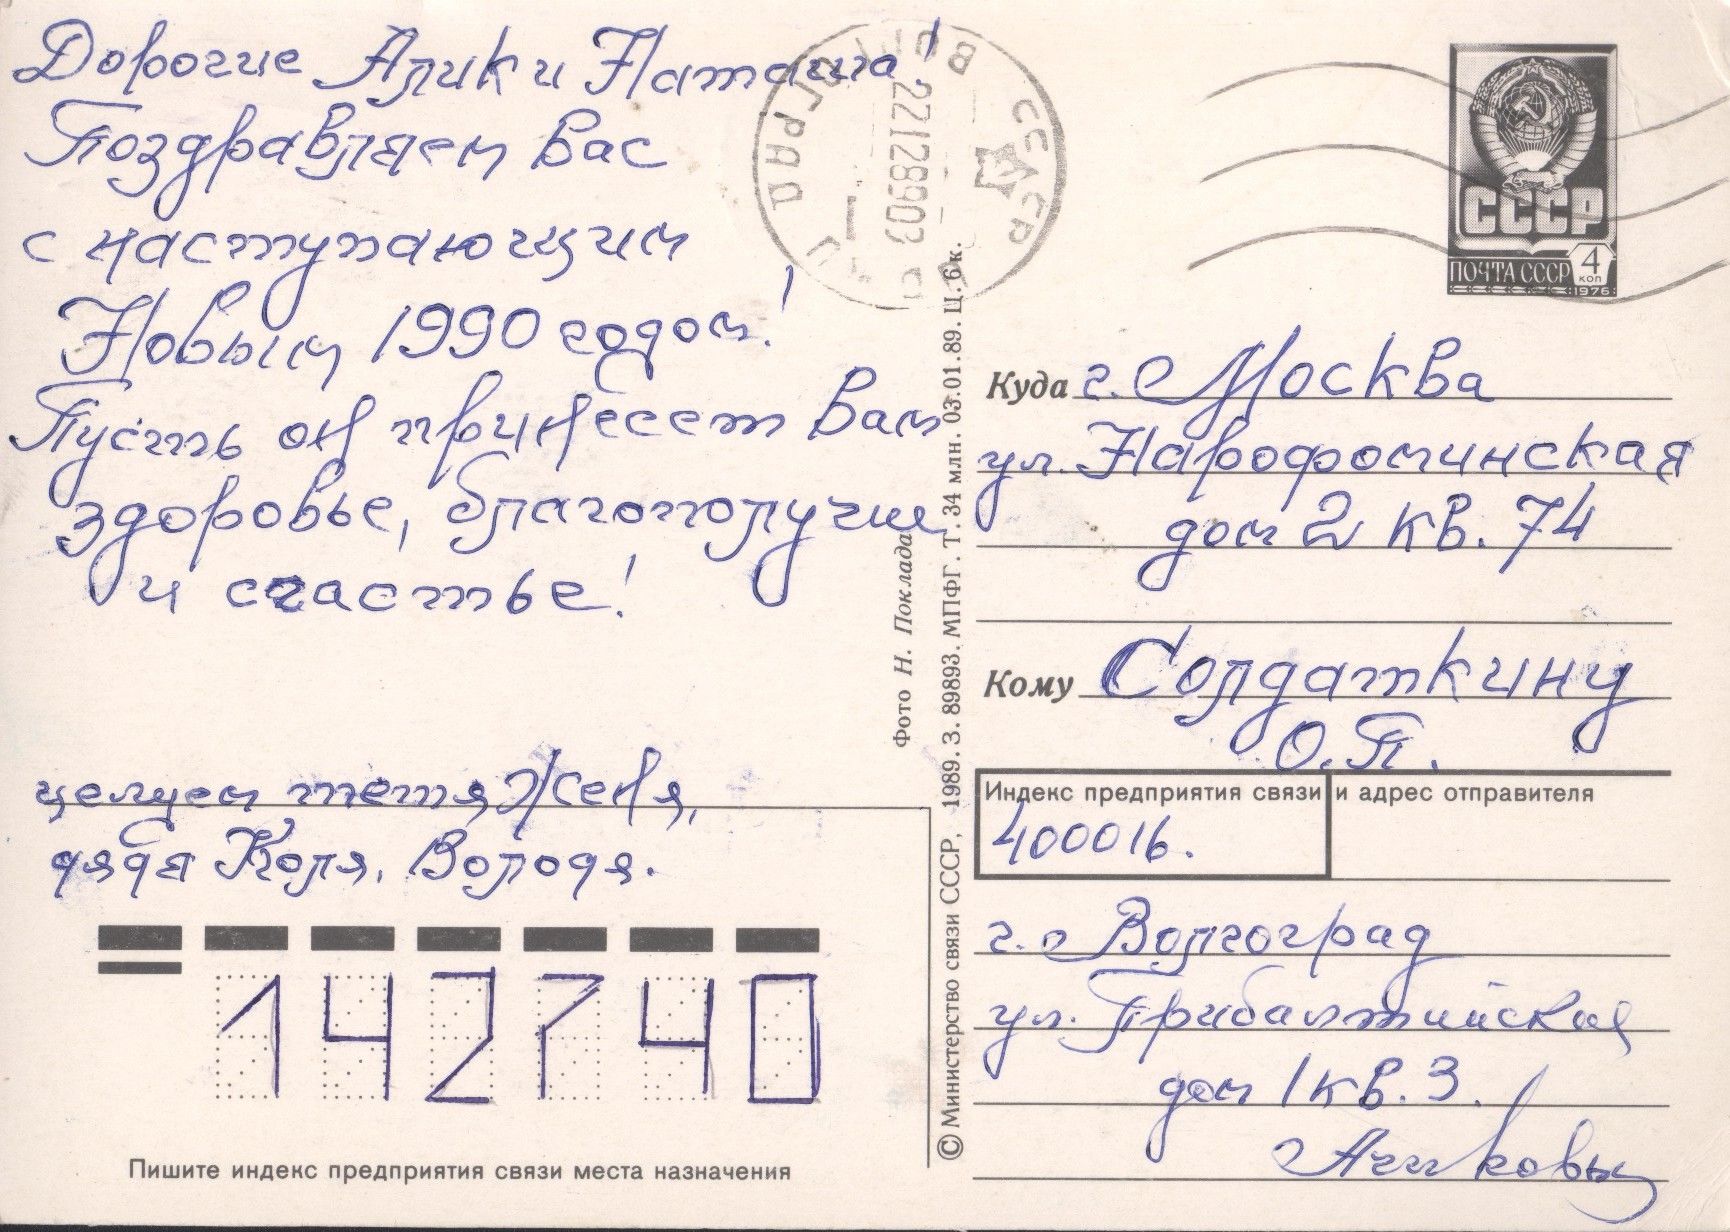 Дорогие Алик и Наташа!
Поздравляем Вас
с наступающим
Новым 1990 годом!
Пусть он принесет Вам
здоровье, благополучие
и счастье!
целуем тетя Женя,
дядя Коля, Володя.
142740
Пишите индекс предприятия связи места назначения
Фото Н. Поклада
© Министерство связи СССР, 1989. З. 89893. МПФГ. Т. 34 млн. 03.01.89. Ц. 6 к.
ВОЛГОГРАД
СССР
22128903
СССР
ПОЧТА СССР 4 КОП
1976
Куда г. Москва
ул. Нарофоминская
дом 2 кв. 74
Кому Солдаткину
О.П.
Индекс предприятия связи и адрес отправителя
400016.
г. Волгоград
ул. Прибалтийская
дом 1 кв. 3.